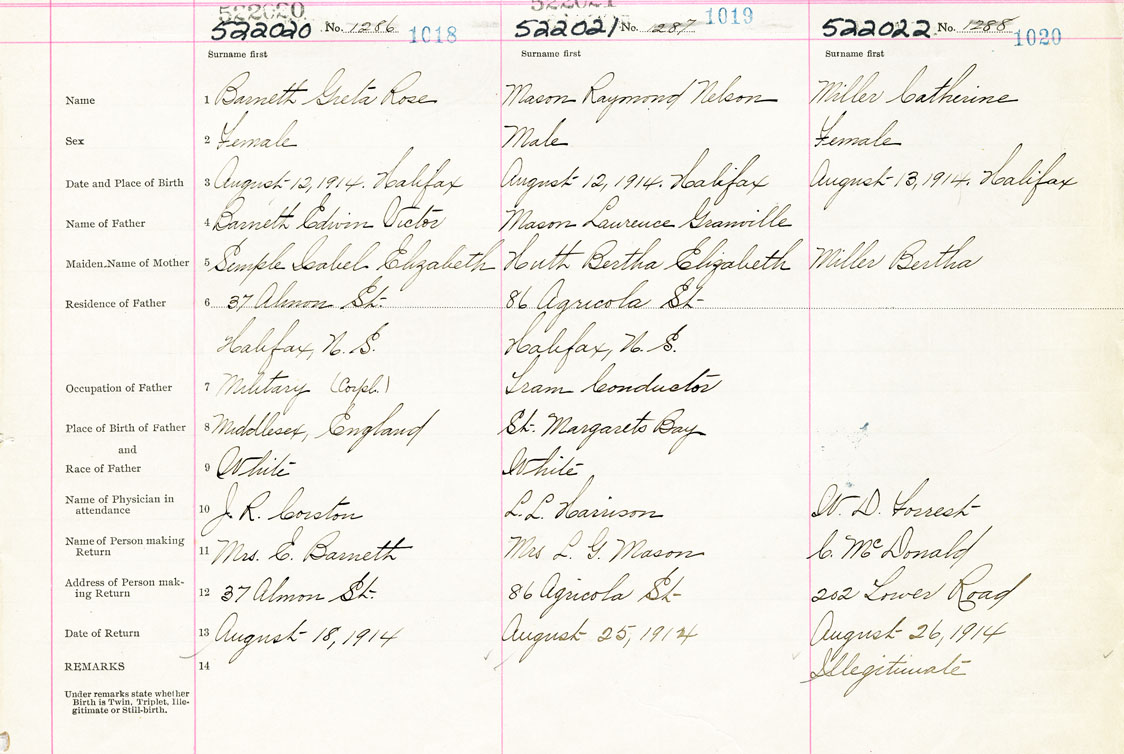 522020 522021
522020 No. 1286 1018 522021 No. 1287 1019 522022 No. 1288 1020
Surname first Surname first Surname first
Name 1 Barnett Greta Rose Mason Raymond Nelson Miller Catherine
Sex 2 Female Male Female
Date and Place of Birth 3 August 12, 1914. Halifax August 12, 1914. Halifax August 13, 1914. Halifax
Name of Father 4 Barnett Edwin Victor Mason Laurence Granville
Maiden Name of Mother 5 Semple Isabel Elizabeth Huth Bertha Elizabeth Miller Bertha
Residence of Father 6 37 Almon St. 86 Agricola St
Halifax, N. S. Halifax, N. S.
Occupation of Father 7 Military (Corpl.) Tram Conductor
Place of Birth of Father 8 Middlesex, England St. Margarets Bay
and
Race of Father 9 White White
Name of Physician in
attendance 10 J. R. Corston L. L. Harrison W. D. Forrest
Name of Person making
Return 11 Mrs. E. Barnett Mrs L. G. Mason C. McDonald
Address of Person mak-
ing Return 12 37 Almon St. 86 Agricola St 202 Lower Road
Date of Return 13 August 18, 1914 August 25, 1914 August 26, 1914
REMARKS 14 Illegitimate
Under remarks state whether
Birth is Twin, Triplet, Ille-
gitimate or Still-birth.